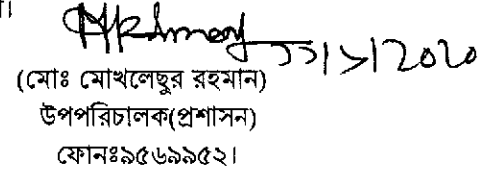 ২১/১/2020
(মোঃ মোখলেছুর রহমান)
উপপরিচালক(প্রশাসন)
ফোনঃ৯৫৬৯৯৫২।